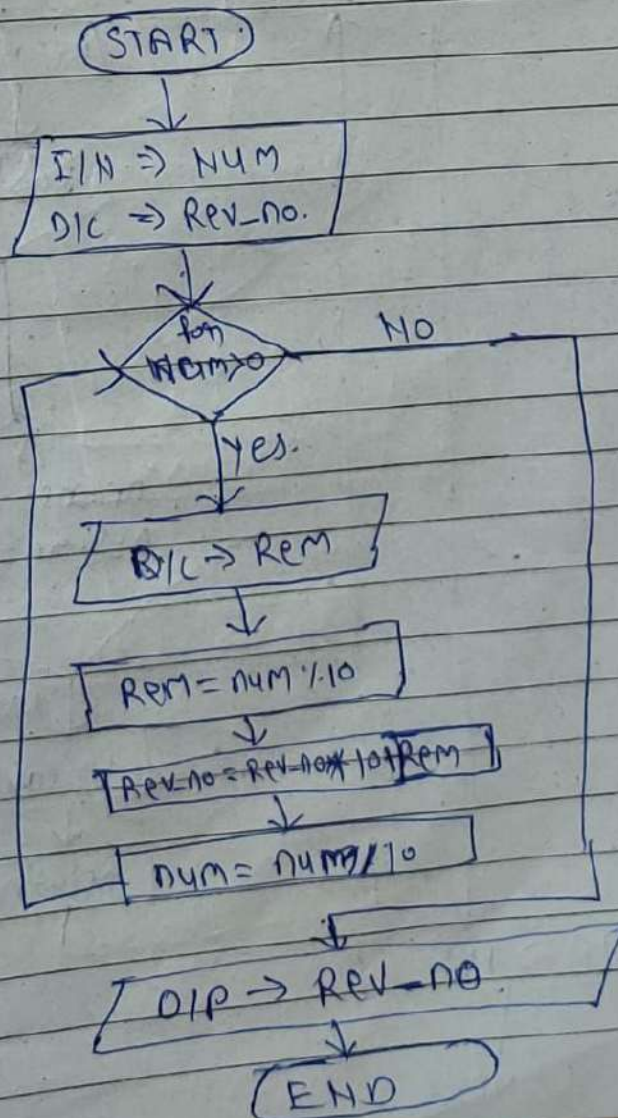 START
I/N => NUM
D/C => Rev_no.
for
Num>0
NO
yes.
D/C -> Rem
Rem = num % 10
Rev_no = Rev_no * 10 + Rem
num = num / 10
O/P -> Rev_no.
END